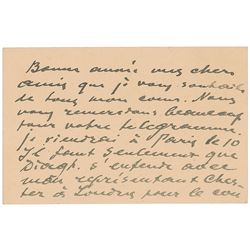 Bonne année mes chers
amis que je vous souhaite
de tout mon cœur. Nous
vous remercions beaucoup
pour votre télégramme.
je viendrai à Paris le 10
Il faut seulement que
s'entende avec
mon représentant
à Londres pour le